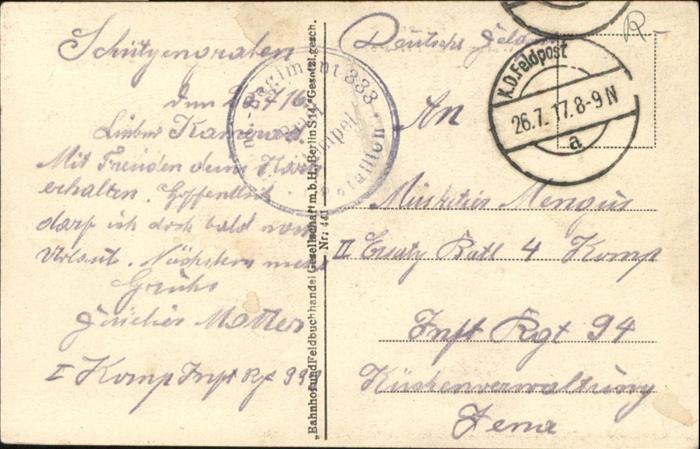 Schützengraben
den
Lieber Kamerad.
Mit Freuden deine Karte
erhalten. Hoffentlich
darf ich doch bald
Urlaub. Nächstens mehr
Grüße
Motter
I Komp Inft Rg
Regiment 333
"Bahnhof und Feldbuchhandel Gesellschaft m.b.H., Berlin S 14." Gesetzl. gesch.
Nr. 441
Deutsche
K.D. Feldpost
26.7.17.8-9 N
a
An
Musketier Mengus
II Ersatz Batl 4 Komp
Inft Rgt 94
Küchenverwaltung
Jena